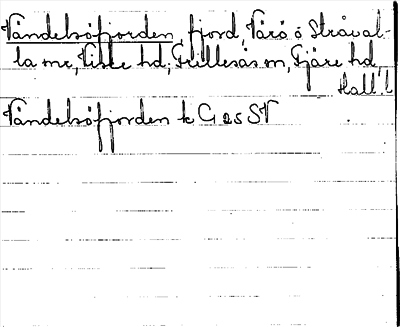 Vändelsöfjorden, fjord, Värö o Stråval-
la snr, Viske hd, Frillesås sn, Fjäre hd,
Hall. l
Vändelsöfjorden k G 25 SV